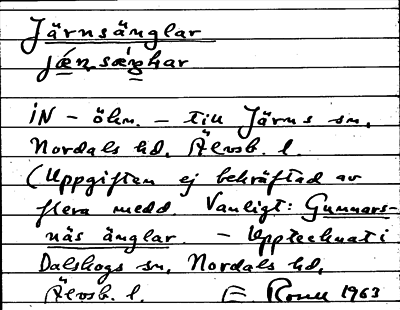 Järnsänglar
jǽnsæŋlar
IN – öhn. – till Järns sn,
Nordals hd, Älvsb. l.
(Uppgiften ej bekräftad av
flera medd. Vanligt: Gunnars-
näs änglar. – Upptecknat i
Dalskogs sn, Nordals hd,
Älvsb. l. E 1963